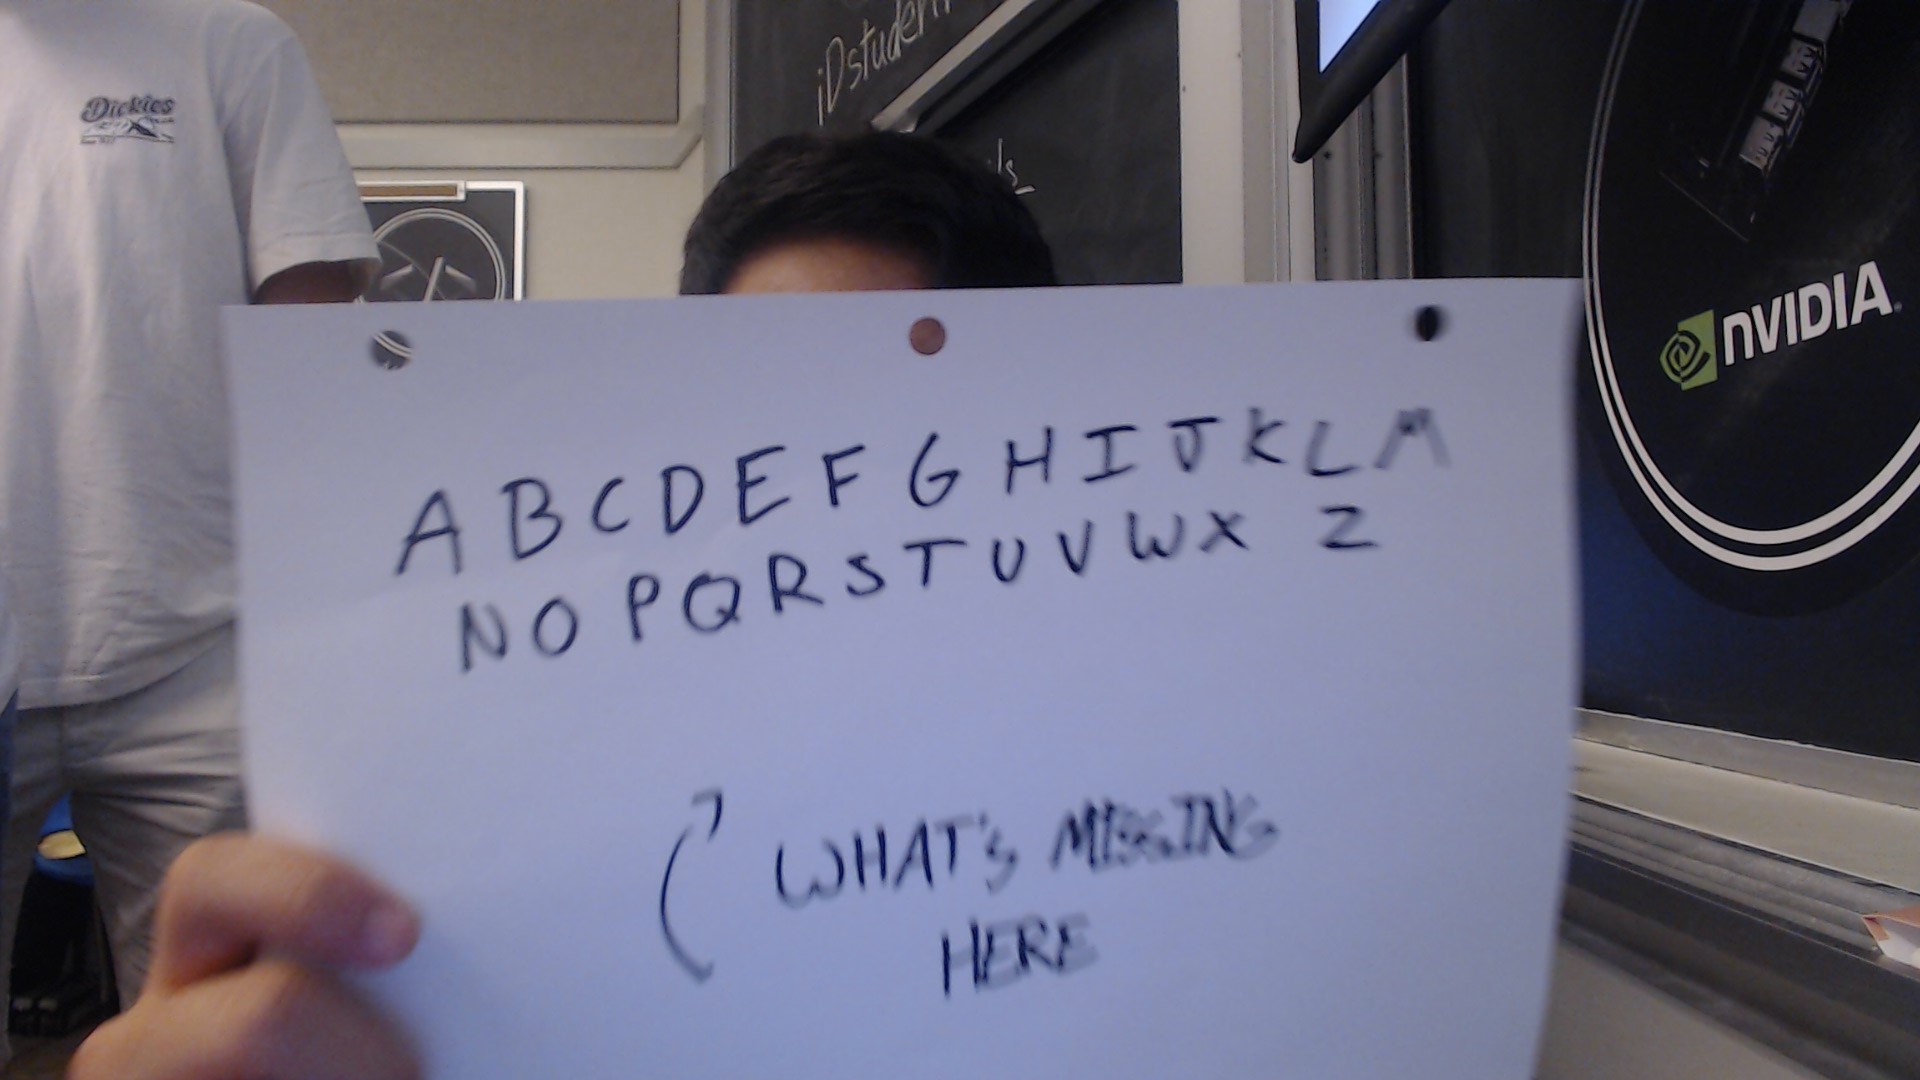 Dickies
iDstuden
ls
NVIDIA
A B C D E F G H I J K L M
N O P Q R S T U V W X Z
WHAT'S MISSING
HERE